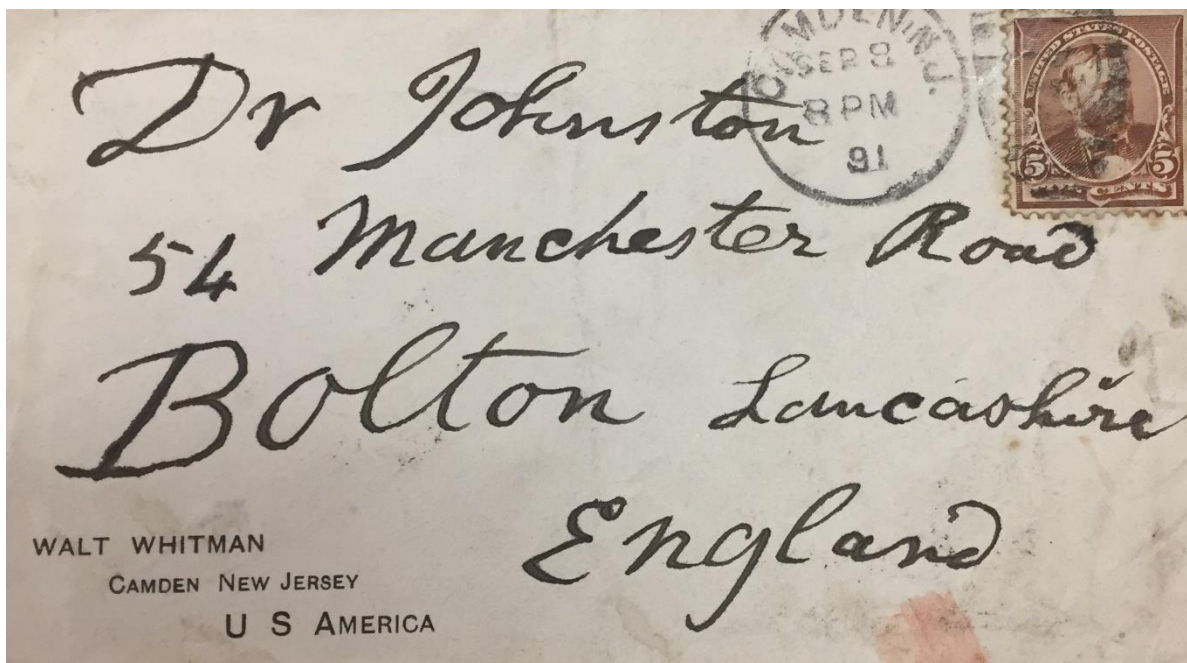 CAMDEN N.J.
SEP 8
8 PM
91
UNITED STATES POSTAGE
5 5
CENTS
Dr Johnston
54 Manchester Road
Bolton Lancashire
England
WALT WHITMAN
CAMDEN NEW JERSEY
U S AMERICA